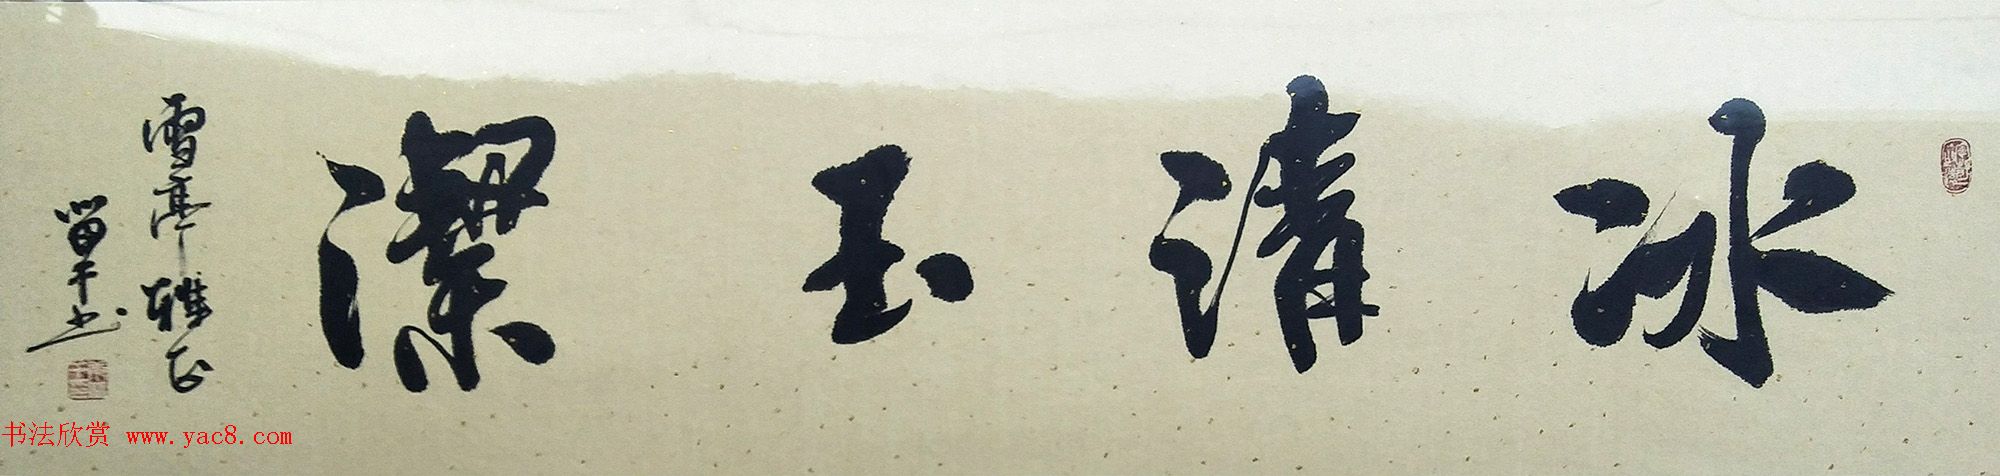 冰清玉潔
雪亭雅正
留平書
书法欣赏 www.yac8.com